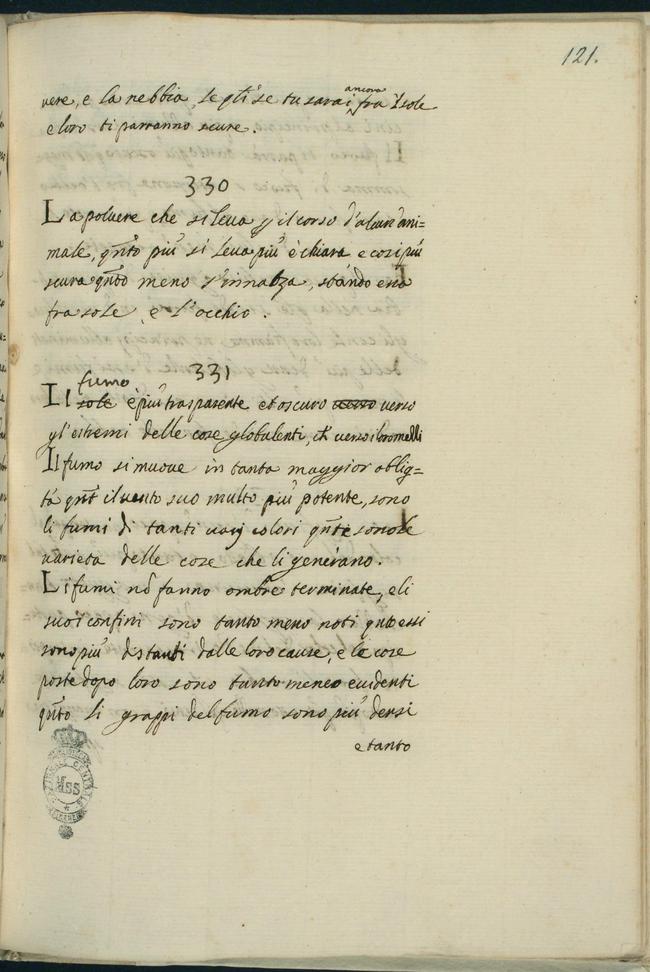 121.
vere, e la nebbia, se gl'se tu sarai ancora fra 'l sole
e loro ti parranno scure.
330
La poluere che si leua p il corso d'alcun'ani=
male, qnto più si leua più è chiara e cosi più
scura qnto meno s'innalza, stando essa
fra sole, e l'occhio.
331
Il sole fumo è più trasparente et oscuro verso
gl'estremi delle cose globulenti, ch verso i loro melli
Il fumo si muoue in tanta maggior obliq=
tà qnt il uento suo multo più potente, sono
li fumi di tanti uarj colori qnte sono le
uarieta delle cose che li generano.
Li fumi nō fanno ombre terminate, e li
suoi confini sono tanto meno noti qnto essi
sono più distanti dalle loro cause, e le cose
poste dopo loro sono tanto meneo euidenti
qnto li groppi del fumo sono più densi
e tanto
MSS